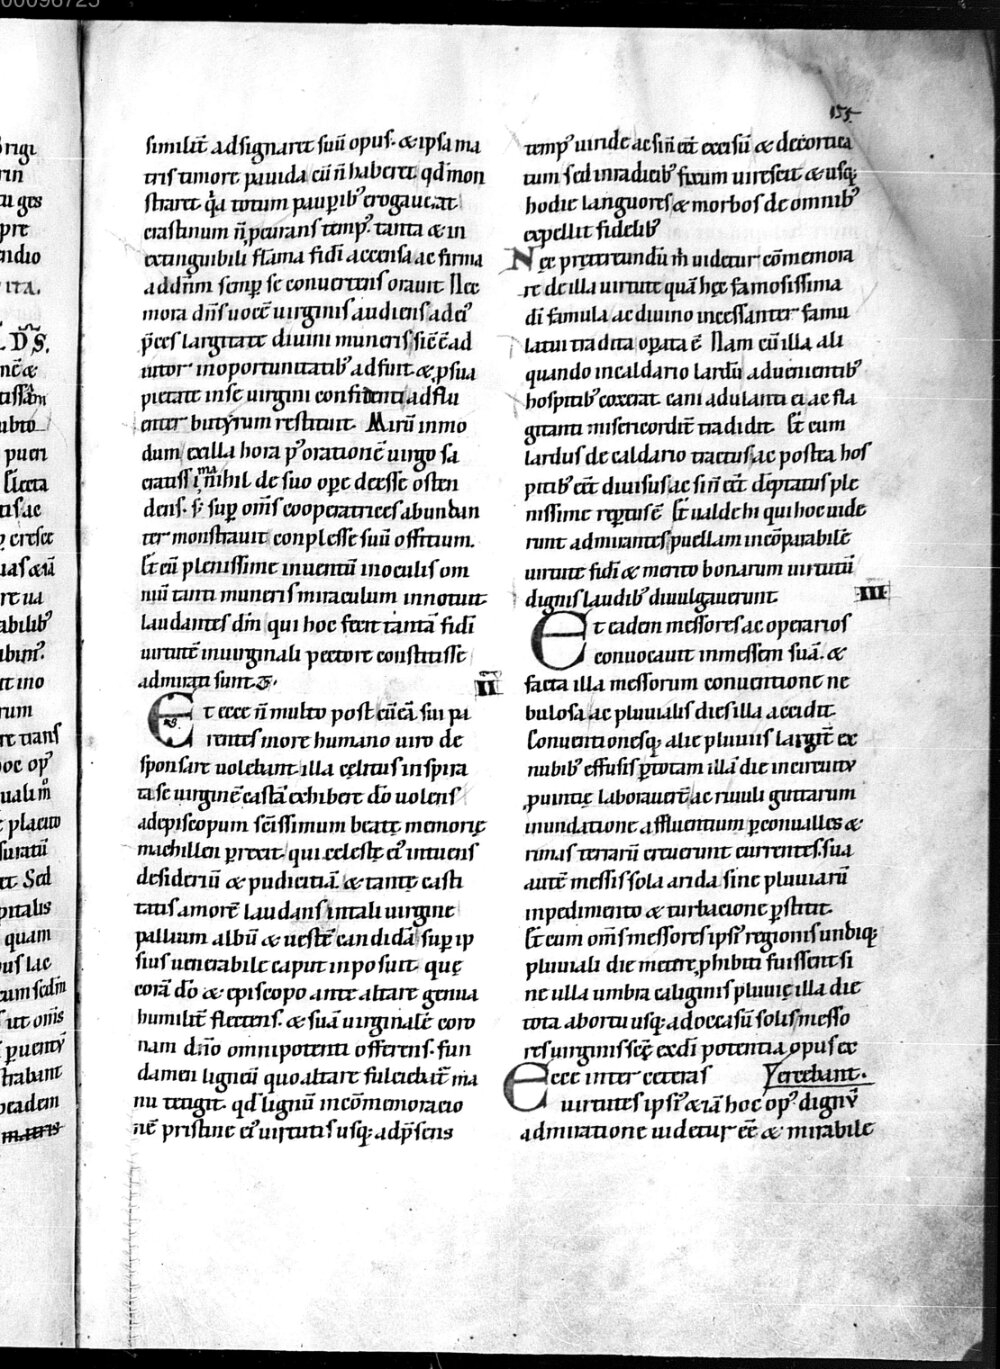 155
similit̄ adsignaret suū opus. & ipsa ma
tris timore pauida cū n̄ haberet qd̄ mon
straret q̇a totum pauꝑib; erogauerat
crastinum n̄ ꝓcurans temp᾽. tanta & in
extinguibili flāma fidei accensa ac firma
ad dn̄m semꝑ se conuertens orauit. Nec
mora dn̄s uocē uirginis audiens ad ei᾽
p̄ces largitate diuini muneris sic̄ ē ad
iutor in oportunitatib; adfuit. & ꝓ sua
pietate in se uirgini confidenti adflu
enter butyrum restituit. Mirū in mo
dum ex illa hora p᾽ orationē uirgo sa
cratissima nihil de suo oꝑe deesse osten
dens. s; suꝑ om̄s cooperatrices abundan
ter monstrauit conplesse suū offitium.
Et cū plenissime inuentū in oculis om
niū tanti muneris miraculum innotuit
laudantes dm̄ qui hoc fecit tantā fidei
uirtutē in uirginali pectore constitisse
admirati sunt
II
Et ecce n̄ multo post cū eā sui pa
rentes more humano uiro de
sponsare uolebant. illa cęlitus inspira
ta se uirginē castā exhibere dō uolens
ad episcopum sc̄issimum beatę memorię
machillen ꝑrexit. qui celeste ei᾽ intuens
desideriū & pudicitiā. & tantę casti
tatis amorē laudans in tali uirgine
pallium albū & uestē candidā suꝑ ip
sius uenerabile caput inposuit. quę
corā dō & episcopo ante altare genua
humilit̄ flectens. & suā uirginalē coro
nam dn̄o omnipotenti offerens. fun
damen ligneū quo altare fulciebat̄ ma
nu tetigit. qd̄ lignū in cōmemoracio
nē pristine ei᾽ uirtutis usq; ad p̄sens
temp᾽ uiride ac sin̄ eēt excisū & decortica
tum sed in radicib; fixum uirescit & usq;
hodie languores & morbos de omnib;
expellit fidelib;
Nec prętereundū m̄ uidetur cōmemora
re de illa uirtute quā hęc famosissima
di famula ac diuino incessanter famu
latui tradita oꝑata ē. Nam cū illa ali
quando in caldario lardū aduenientib;
hospitib; coxerat. cani adulanti ei ac fla
gitanti misericordit̄ tradidit. Et cum
lardus de caldario tractus ac postea hos
pitib; eēt diuisus ac sin̄ eēt dēptatus ple
nissime reꝑtus ē. Et ualde hi qui hoc uide
runt admirantes puellam incōparabilē
uirtute fidei & merito bonarum uirtutū
dignis laudib; diuulgauerunt.
III
Et eadem messores ac operarios
conuocauit in messem suā. &
facta illa messorum conuentione ne
bulosa ac pluuialis dies illa accidit.
Conuentionesq; alie pluuiis largit̄ ex
nubib; effusis ꝑ totam illā die in circuitu
ꝓuintię laborauer̄t ac riuuli guttarum
inundatione affluentium ꝑ conualles &
rimas terrarū creuerunt currentes. sua
autē messis sola arida sine pluuiarū
inpedimento & turbacione ꝑstitit.
Et cum om̄s messores ipsi᾽ regionis undiq;
pluuiali die metere ꝓhibiti fuissent si
ne ulla umbra caliginis pluuię illa die
tota ab ortu usq; ad occasū solis messo
res uirginis scę̄ ex di potentia opus ex
Ecce inter ceteras ercebant.
uirtutes ipsi᾽ etiā hoc op᾽ dignū
admiratione uidetur eē & mirabile